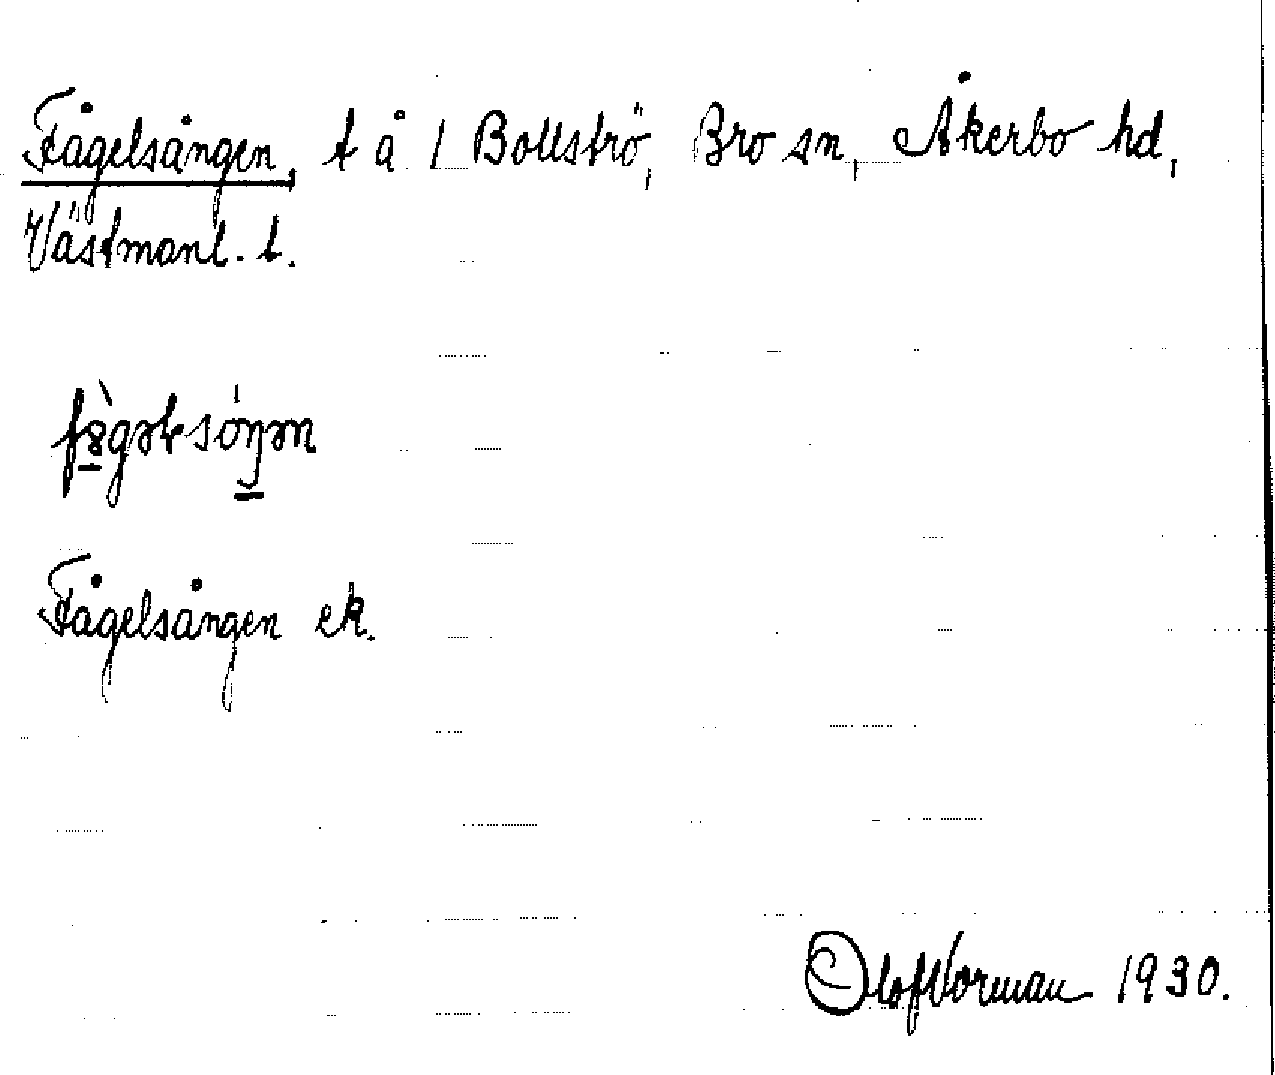 Fågelsången, t å 1 Bollströ, Bro sn, Åkerbo hd,
Västmanl. l.
Fågelsången ek.
Olof Norman 1930.